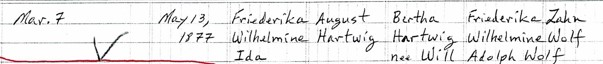 Mar. 7 May 13, Friederika August Bertha Friederika Zahn
1877 Wilhelmine Hartwig Hartwig Wilhelmine Wolf
Ida nee Will Adolph Wolf